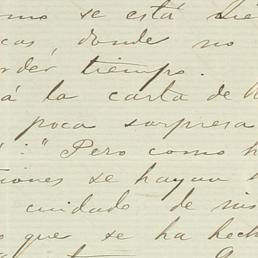 omo se está
cas, donde no
rder tiempo.
á la carta de
poca sorpresa
: "Pero como h
ciones se hayan
cuidado de mis
o que se ha hech